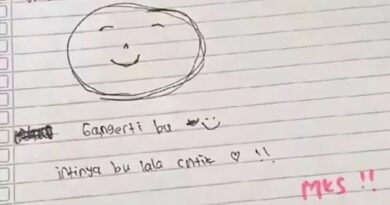 Gangerti bu
intinya bu lala cntik ♡ !!
MKS !!